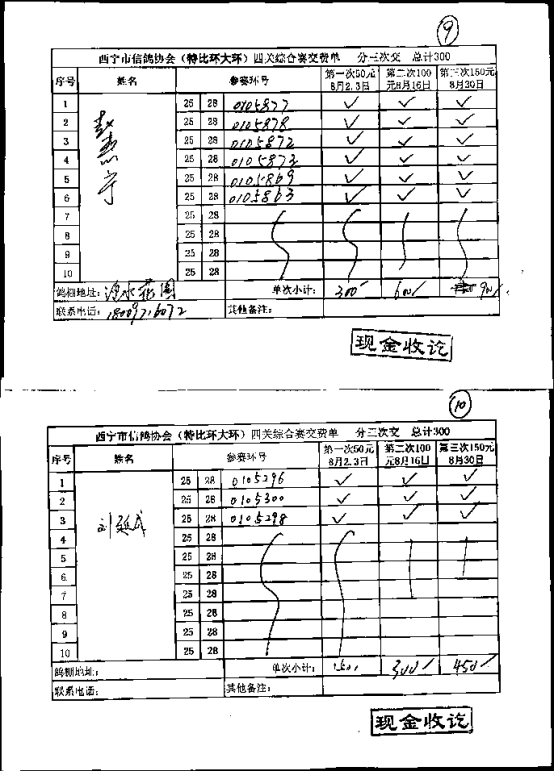 9
西宁市信鸽协会（特比环大环）四关综合赛交费单 分三次交 总计300
序号 姓名 参赛环号 第一次50元8月2.3日 第二次100元8月16日 第三次150元8月30日
1 25 28 0105877 ✓ ✓ ✓
2 25 28 0105878 ✓ ✓ ✓
3 25 28 0105872 ✓ ✓ ✓
4 25 28 0105873 ✓ ✓ ✓
5 25 28 0105869 ✓ ✓ ✓
6 25 28 0105863 ✓ ✓ ✓
7 25 28
8 25 28
9 25 28
10 25 28
鸽棚地址: 单次小计: 300 600 900
联系电话: 18009716072 其他备注:
现金收讫
10
西宁市信鸽协会（特比环大环）四关综合赛交费单 分三次交 总计300
序号 姓名 参赛环号 第一次50元8月2.3日 第二次100元8月16日 第三次150元8月30日
1 25 28 0105296 ✓ ✓ ✓
2 25 28 0105300 ✓ ✓ ✓
3 刘延成 25 28 0105298 ✓ ✓ ✓
4 25 28
5 25 28
6 25 28
7 25 28
8 25 28
9 25 28
10 25 28
鸽棚地址: 单次小计: 150 300 450
联系电话: 其他备注:
现金收讫